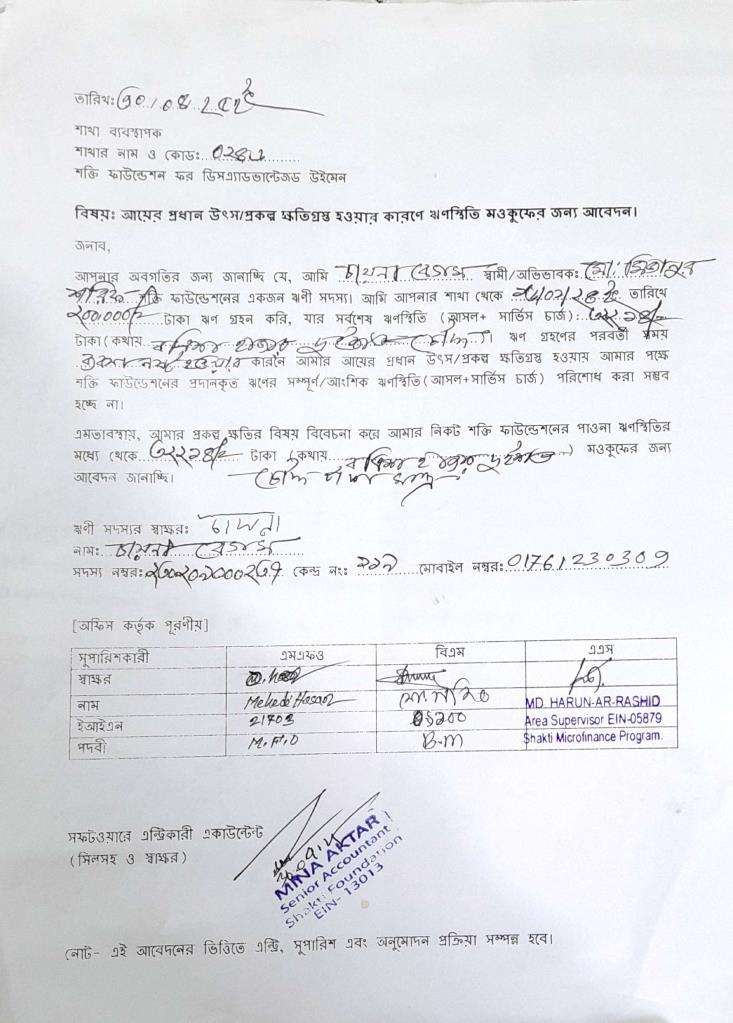 তারিখঃ
শাখা ব্যবস্থাপক
শাখার নাম ও কোডঃ
শক্তি ফাউন্ডেশন ফর ডিসএ্যাডভান্টেজড উইমেন
বিষয়ঃ আয়ের প্রধান উৎস/প্রকল্প ক্ষতিগ্রস্থ হওয়ার কারণে ঋণস্থিতি মওকুফের জন্য আবেদন।
জনাব,
আপনার অবগতির জন্য জানাচ্ছি যে, আমি চায়না বেগম স্বামী/অভিভাবকঃ মোঃ মিজানুর
শক্তি ফাউন্ডেশনের একজন ঋণী সদস্য। আমি আপনার শাখা থেকে তারিখে
২০০,০০০/= টাকা ঋণ গ্রহন করি, যার সর্বশেষ ঋণস্থিতি (আসল+ সার্ভিস চার্জ):
টাকা(কথায় ঋণ গ্রহণের পরবর্তী সময়
কারনে আমার আয়ের প্রধান উৎস/প্রকল্প ক্ষতিগ্রস্থ হওয়ায় আমার পক্ষে
শক্তি ফাউন্ডেশনের প্রদানকৃত ঋণের সম্পূর্ণ/আংশিক ঋণস্থিতি(আসল+সার্ভিস চার্জ) পরিশোধ করা সম্ভব
হচ্ছে না।
এমতাবস্থায়, আমার প্রকল্প ক্ষতির বিষয় বিবেচনা করে আমার নিকট শক্তি ফাউন্ডেশনের পাওনা ঋণস্থিতির
মধ্যে থেকে টাকা (কথায় ) মওকুফের জন্য
আবেদন জানাচ্ছি।
ঋণী সদস্যর স্বাক্ষরঃ চায়না
নামঃ চায়না বেগম
সদস্য নম্বরঃ কেন্দ্র নংঃ মোবাইল নম্বরঃ 01761230309
[অফিস কর্তৃক পূরণীয়]
সুপারিশকারী এমএফও বিএম এএস
স্বাক্ষর
নাম Mehedi Hasan MD. HARUN-AR-RASHID
ইআইএন 21703 05200 Area Supervisor EIN-05879
পদবী M.F.O B.M Shakti Microfinance Program.
সফটওয়ারে এন্ট্রিকারী একাউন্টেন্ট
(সিলসহ ও স্বাক্ষর)
MINA AKTAR
Senior Accountant
Shakti Foundation
EIN- 13013
নোট- এই আবেদনের ভিত্তিতে এন্ট্রি, সুপারিশ এবং অনুমোদন প্রক্রিয়া সম্পন্ন হবে।